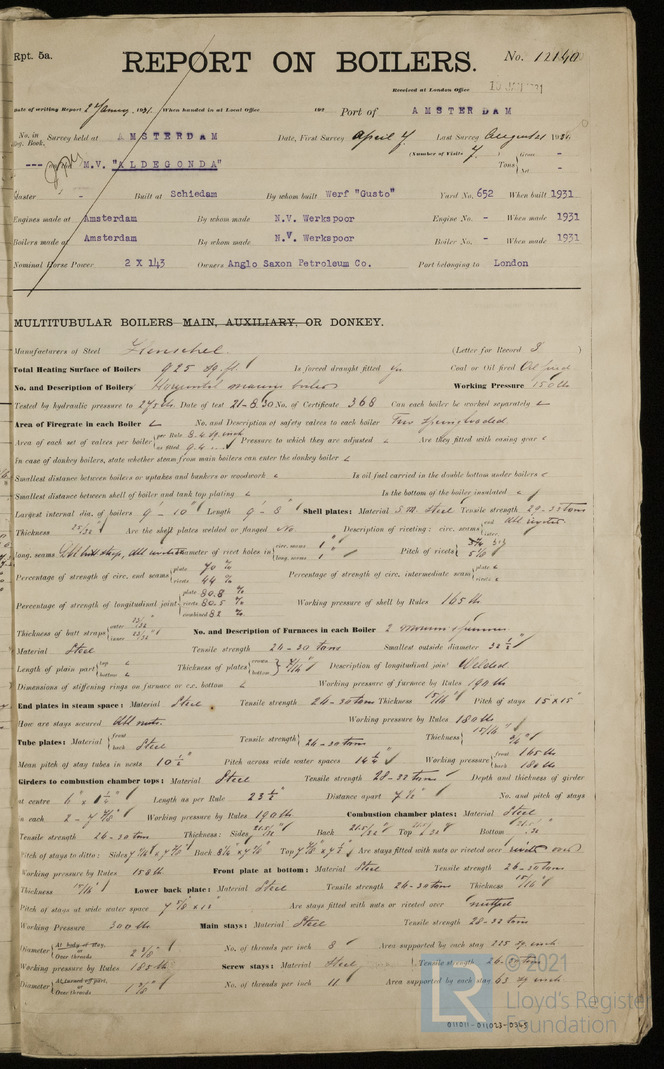 Rpt. 5a.
REPORT ON BOILERS.
No. 12140
Received at London Office 10 JAN 1931
Date of writing Report 2 January 1931. When handed in at Local Office 192 Port of AMSTERDAM
No. in Reg. Book. Survey held at AMSTERDAM Date, First Survey April 7 Last Survey August 21 1930
(Number of Visits 7) Tons Gross - Net -
--- M.V. "ALDEGONDA"
Master - Built at Schiedam By whom built Werf "Gusto" Yard No. 652 When built 1931
Engines made at Amsterdam By whom made N.V. Werkspoor Engine No. - When made 1931
Boilers made at Amsterdam By whom made N.V. Werkspoor Boiler No. - When made 1931
Nominal Horse Power 2 X 143 Owners Anglo Saxon Petroleum Co. Port belonging to London
MULTITUBULAR BOILERS MAIN, AUXILIARY, OR DONKEY.
Manufacturers of Steel Henschel (Letter for Record S)
Total Heating Surface of Boilers 925 sq. ft. Is forced draught fitted Coal or Oil fired Oil fired
No. and Description of Boilers Horizontal marine boiler Working Pressure 150 lb
Tested by hydraulic pressure to 275 lb. Date of test 21-8-30 No. of Certificate 368 Can each boiler be worked separately
Area of Firegrate in each Boiler No. and Description of safety valves to each boiler Two Springloaded
Area of each set of valves per boiler per Rule 8.4 sq. inch as fitted 9.4 Pressure to which they are adjusted Are they fitted with easing gear
In case of donkey boilers, state whether steam from main boilers can enter the donkey boiler
Smallest distance between boilers or uptakes and bunkers or woodwork Is oil fuel carried in the double bottom under boilers
Smallest distance between shell of boiler and tank top plating Is the bottom of the boiler insulated
Largest internal dia. of boilers 9' - 10" Length 9' - 8" Shell plates: Material S.M. Steel Tensile strength 29-32 tons
Thickness 25/32" Are the shell plates welded or flanged No. Description of riveting: circ. seams end
long. seams diameter of rivet holes in circ. seams 1" long. seams 1" Pitch of rivets
Percentage of strength of circ. end seams plate 70 % rivets 44 % Percentage of strength of circ. intermediate seam plate rivets
Percentage of strength of longitudinal joint plate 80.8 % rivets 80.5 % combined 82 % Working pressure of shell by Rules 165 lb
Thickness of butt straps outer 23/32 inner 23/32" No. and Description of Furnaces in each Boiler 2
Material Steel Tensile strength 24-30 tons Smallest outside diameter 32 1/2"
Length of plain part top bottom Thickness of plates crown bottom Description of longitudinal joint Welded
Dimensions of stiffening rings on furnace or c.c. bottom Working pressure of furnace by Rules 190 lb
End plates in steam space: Material Steel Tensile strength 26-30 tons Thickness 15/16" Pitch of stays 15 x 15"
How are stays secured Dbl nuts. Working pressure by Rules 180 lb
Tube plates: Material front back Steel Tensile strength 26-30 tons Thickness 15/16"
Mean pitch of stay tubes in nests 10 1/2" Pitch across wide water spaces 14 1/2" Working pressure front 165 lb back 180 lb
Girders to combustion chamber tops: Material Steel Tensile strength 28-32 tons Depth and thickness of girder
at centre Length as per Rule 23 1/2" Distance apart 7 1/2" No. and pitch of stays
in each Working pressure by Rules 190 lb Combustion chamber plates: Material Steel
Tensile strength 26-30 tons Thickness: Sides Back Top Bottom
Pitch of stays to ditto: Sides Back Top Are stays fitted with nuts or riveted over
Working pressure by Rules Front plate at bottom: Material Steel Tensile strength 26-30 tons
Thickness 15/16" Lower back plate: Material Steel Tensile strength 26-30 tons Thickness 15/16"
Pitch of stays at wide water space Are stays fitted with nuts or riveted over nutted
Working Pressure 300 lb Main stays: Material Steel Tensile strength 28-32 tons
Diameter At body of stay, or Over threads No. of threads per inch 8 Area supported by each stay 225 sq. inch
Working pressure by Rules 185 lb Screw stays: Material Steel Tensile strength 26-30 tons
Diameter At turned off part, or Over threads No. of threads per inch 11 Area supported by each stay 63 sq inch
© 2021
LR Lloyd's Register
Foundation
011011-011023-0365